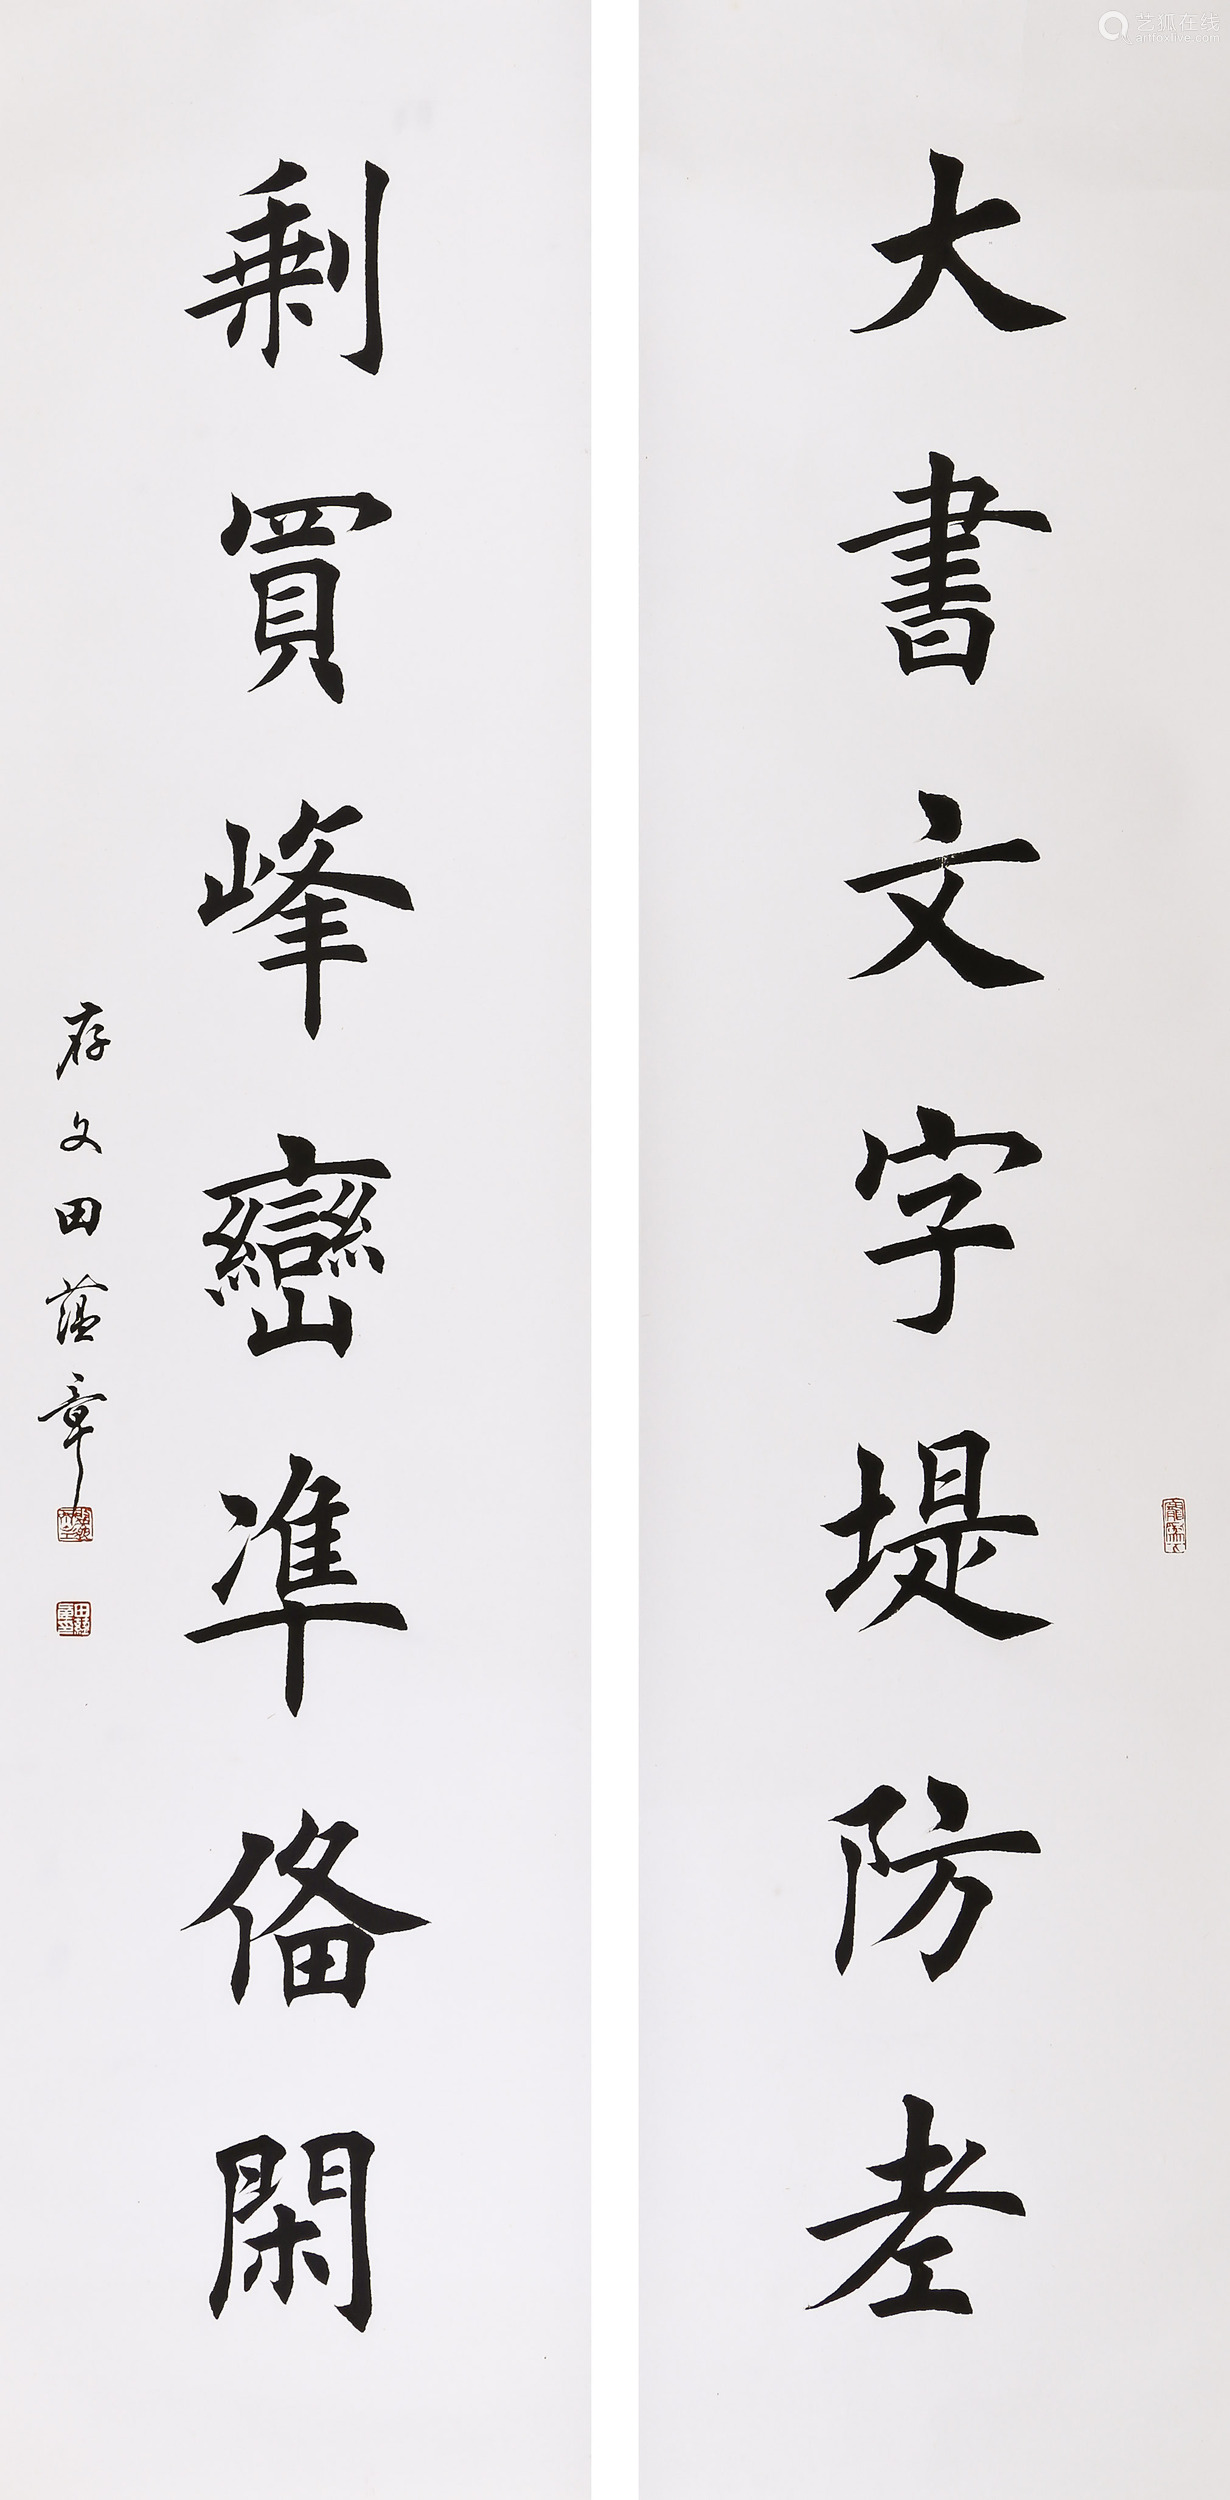 艺狐在线
artfoxlive.com
大書文字堤防老
剩買峰巒凖俻閑
存文田薀章